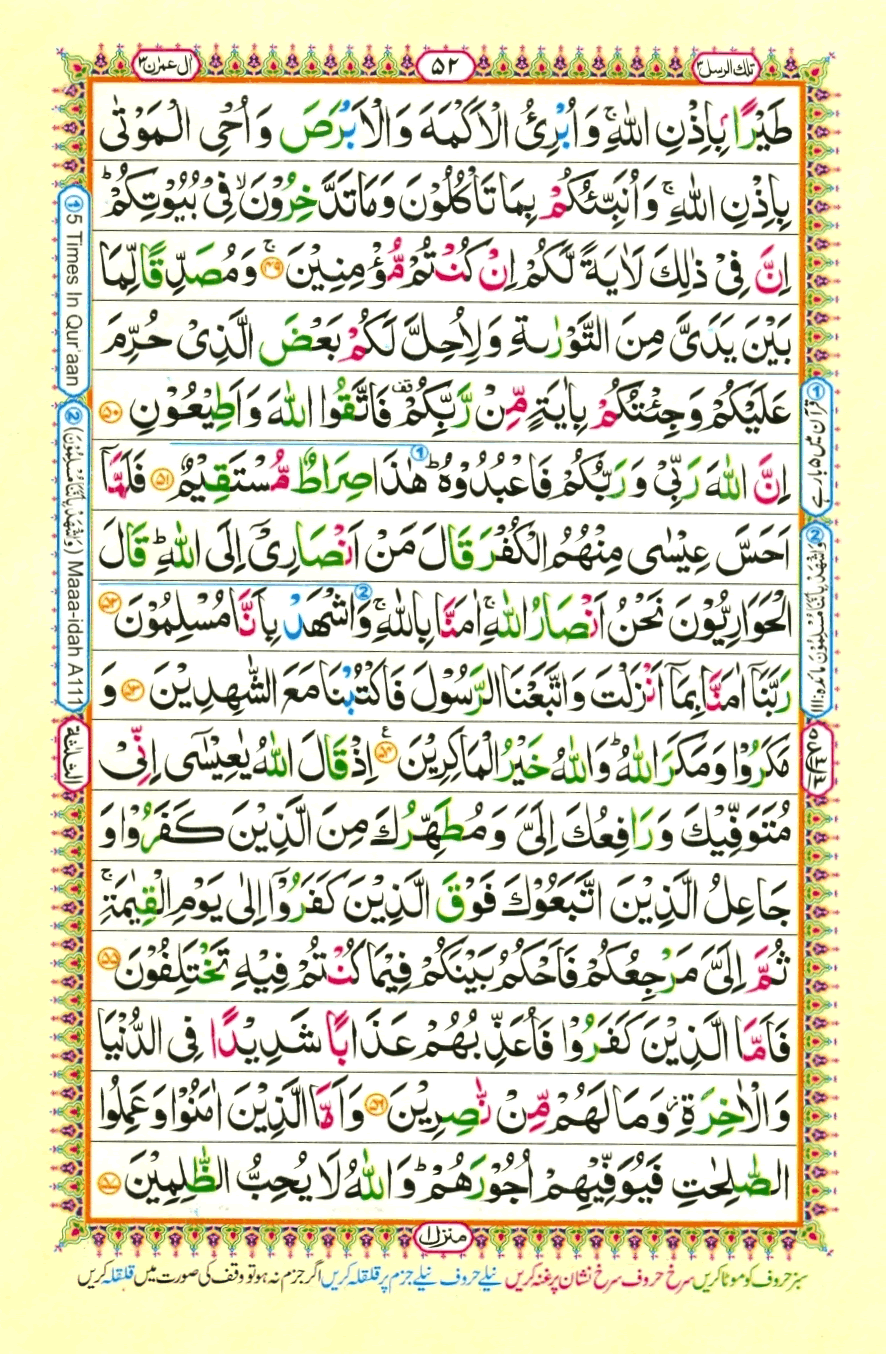 تلك الرسل ٣
٥٢
اٰل عمرٰن ٣
طَيْرًۢا بِاِذْنِ اللّٰهِ ۚ وَاُبْرِئُ الْاَكْمَهَ وَالْاَبْرَصَ وَاُحْيِ الْمَوْتٰى
بِاِذْنِ اللّٰهِ ۚ وَاُنَبِّئُكُمْ بِمَا تَاْكُلُوْنَ وَمَا تَدَّخِرُوْنَ ۙ فِيْ بُيُوْتِكُمْ ؕ
اِنَّ فِيْ ذٰلِكَ لَاٰيَةً لَّكُمْ اِنْ كُنْتُمْ مُّؤْمِنِيْنَ ۚ ﴿۴۹﴾ وَمُصَدِّقًا لِّمَا
بَيْنَ يَدَيَّ مِنَ التَّوْرٰىةِ وَلِاُحِلَّ لَكُمْ بَعْضَ الَّذِيْ حُرِّمَ
عَلَيْكُمْ وَجِئْتُكُمْ بِاٰيَةٍ مِّنْ رَّبِّكُمْ قف فَاتَّقُوا اللّٰهَ وَاَطِيْعُوْنِ ﴿۵۰﴾
اِنَّ اللّٰهَ رَبِّيْ وَرَبُّكُمْ فَاعْبُدُوْهُ ؕ ① هٰذَا صِرَاطٌ مُّسْتَقِيْمٌ ﴿۵۱﴾ فَلَمَّاۤ
اَحَسَّ عِيْسٰى مِنْهُمُ الْكُفْرَ قَالَ مَنْ اَنْصَارِيْۤ اِلَى اللّٰهِ ؕ قَالَ
الْحَوَارِيُّوْنَ نَحْنُ اَنْصَارُ اللّٰهِ ۚ اٰمَنَّا بِاللّٰهِ ۚ ② وَاشْهَدْ بِاَنَّا مُسْلِمُوْنَ ﴿۵۲﴾
رَبَّنَاۤ اٰمَنَّا بِمَاۤ اَنْزَلْتَ وَاتَّبَعْنَا الرَّسُوْلَ فَاكْتُبْنَا مَعَ الشّٰهِدِيْنَ ﴿۵۳﴾ وَ
مَكَرُوْا وَمَكَرَ اللّٰهُ ؕ وَاللّٰهُ خَيْرُ الْمَاكِرِيْنَ ﴿۵۴﴾ ع اِذْ قَالَ اللّٰهُ يٰعِيْسٰۤى اِنِّيْ
مُتَوَفِّيْكَ وَرَافِعُكَ اِلَيَّ وَمُطَهِّرُكَ مِنَ الَّذِيْنَ كَفَرُوْا وَ
جَاعِلُ الَّذِيْنَ اتَّبَعُوْكَ فَوْقَ الَّذِيْنَ كَفَرُوْۤا اِلٰى يَوْمِ الْقِيٰمَةِ ۚ
ثُمَّ اِلَيَّ مَرْجِعُكُمْ فَاَحْكُمُ بَيْنَكُمْ فِيْمَا كُنْتُمْ فِيْهِ تَخْتَلِفُوْنَ ﴿۵۵﴾
فَاَمَّا الَّذِيْنَ كَفَرُوْا فَاُعَذِّبُهُمْ عَذَابًا شَدِيْدًا فِي الدُّنْيَا
وَالْاٰخِرَةِ ؗ وَمَا لَهُمْ مِّنْ نّٰصِرِيْنَ ﴿۵۶﴾ وَاَمَّا الَّذِيْنَ اٰمَنُوْا وَعَمِلُوا
الصّٰلِحٰتِ فَيُوَفِّيْهِمْ اُجُوْرَهُمْ ؕ وَاللّٰهُ لَا يُحِبُّ الظّٰلِمِيْنَ ﴿۵۷﴾
① قرآن میں ۵ بار ہے
② وَاشْهَدْ بِاَنَّنَا مُسْلِمُوْنَ مائدہ: ١١١
٥ ع ١٣ ٣
① 5 Times In Qur'aan
② (وَاشْهَدْ بِاَنَّنَا مُسْلِمُوْنَ) Maaa-idah A111
الثلثة
منزل ١
سبز حروف کو موٹا کریں سرخ حروف سرخ نشان پر غنہ کریں نیلے حروف نیلے جزم پر قلقلہ کریں اگر جزم نہ ہو تو وقف کی صورت میں قلقلہ کریں